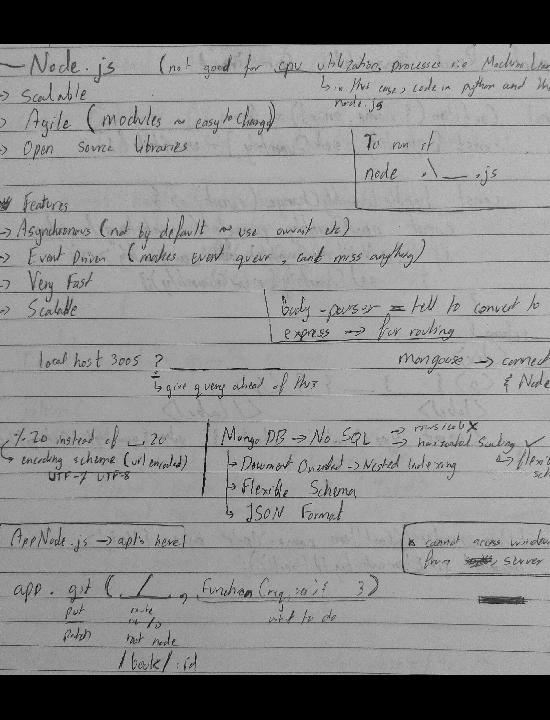 Node.js (not good for cpu utilization, processes i.e Machine Lear
↳ in this case, code in python and
node.js
→ Scalable
→ Agile (modules ~ easy to change)
→ Open Source libraries
To run it
node .\__.js
* Features
→ Asynchronous (not by default ~ use await etc)
→ Event Driven (makes event queue, can't miss anything)
→ Very Fast
→ Scalable
body-parser = tell to convert to
express → for routing
local host 3005 ?
↳ give query ahead of this
mongoose → connect
& Node
% 20 instead of __ 20
→ encoding scheme (url encoded)
UTF-7 UTF-8
Mongo DB → No SQL → X
→ horizontal Scaling ✓
↳ Document Oriented → Nested Indexing
↳ Flexible Schema
↳ JSON Format
→ flexi
sch
AppNode.js → api's here
* cannot access window
from server
app.get ( __/__ , function (req, { })
put
patch
route
not node
want to do
/book/:id